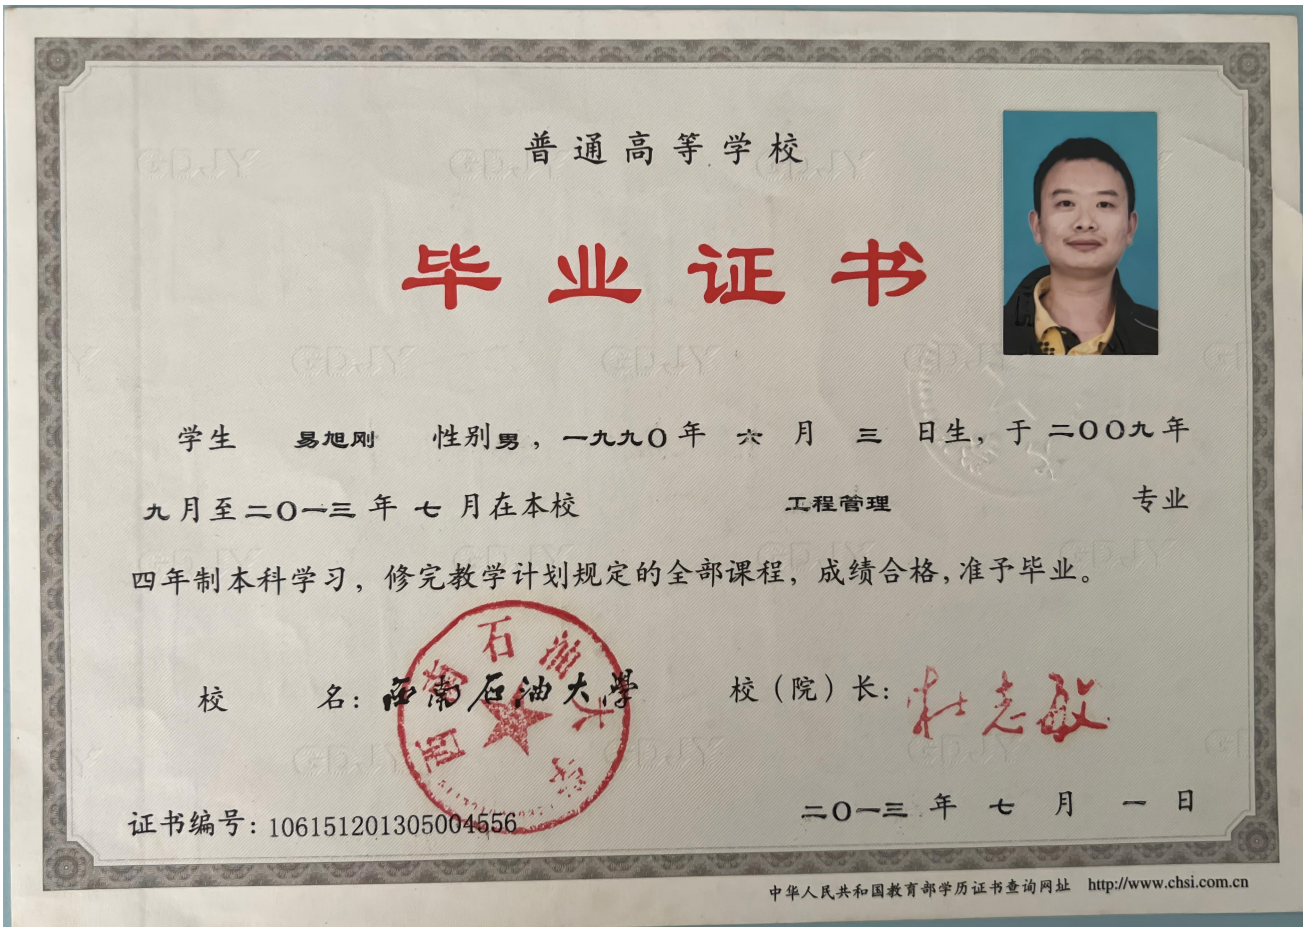 普通高等学校
毕业证书
学生 易旭刚 性别男，一九九〇年 六 月 三 日生，于二〇〇九年
九月至二〇一三年 七 月在本校 工程管理 专业
四年制本科学习，修完教学计划规定的全部课程，成绩合格，准予毕业。
校 名：西南石油大学 校（院）长：杜志敏
西南石油大学
二〇一三 年 七 月 一 日
证书编号：106151201305004556
中华人民共和国教育部学历证书查询网址 http://www.chsi.com.cn
GDJY